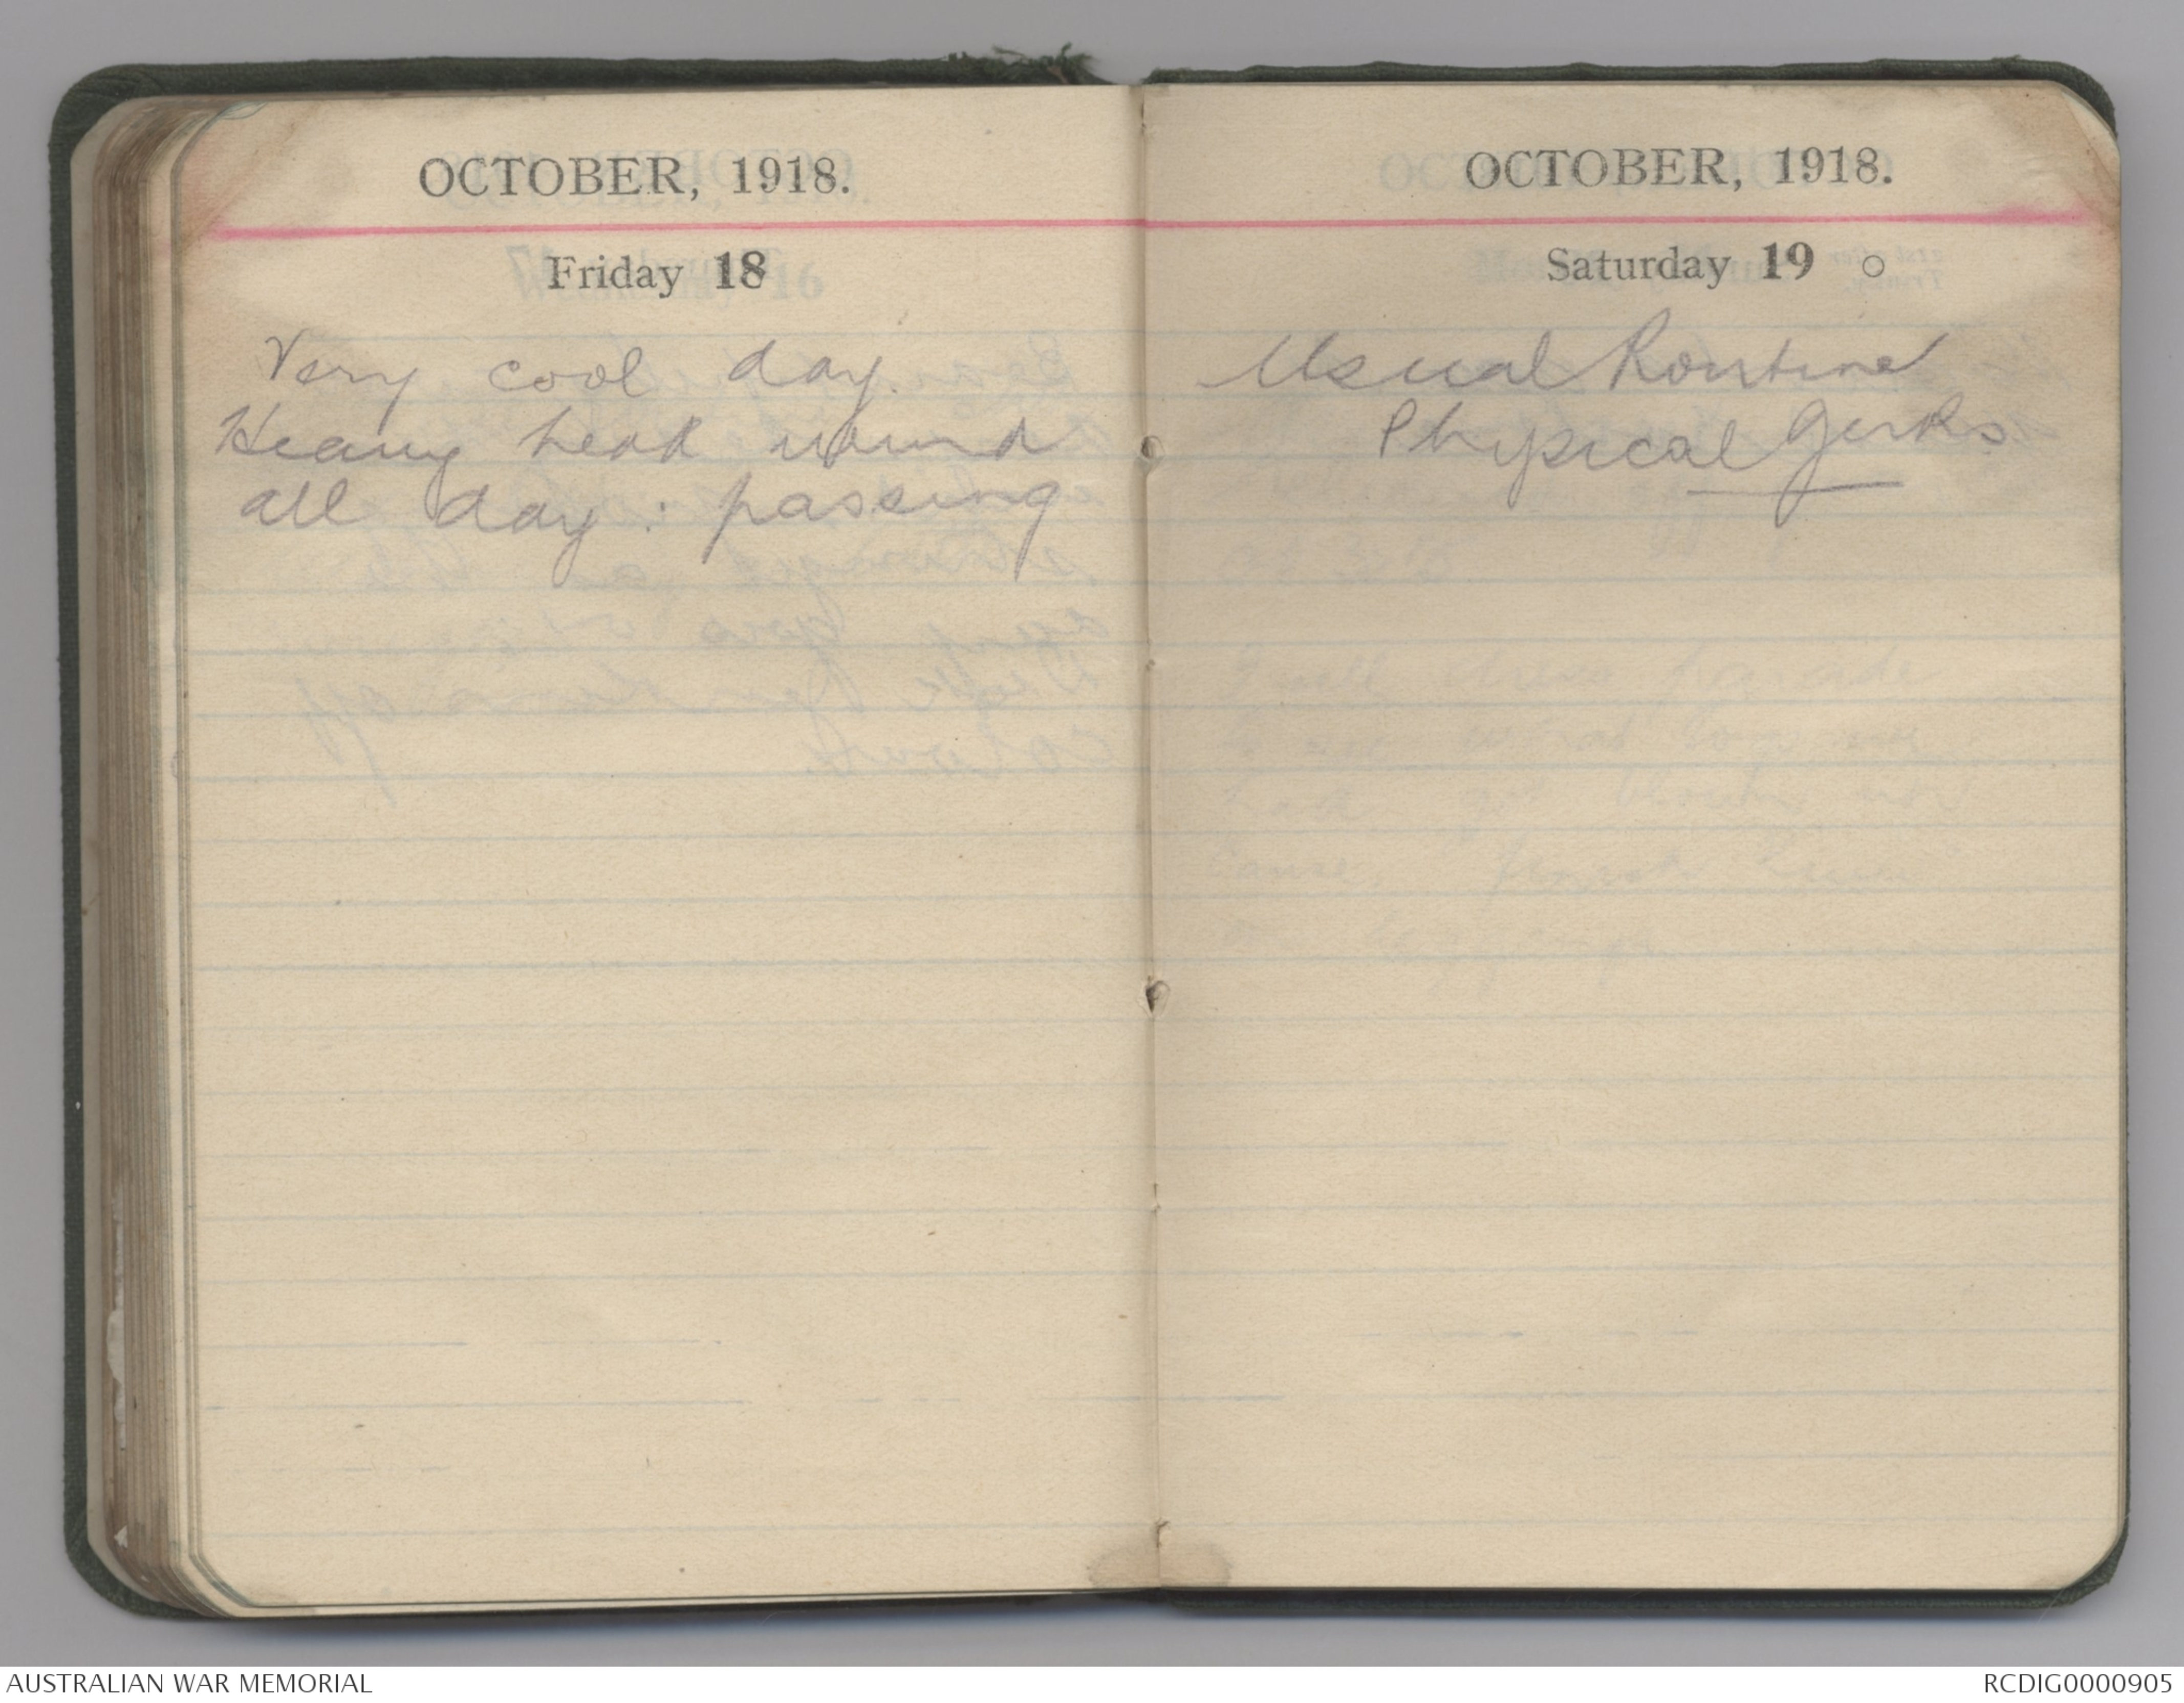 OCTOBER, 1918.
Friday 18
Very cool day.
Heavy head wind
all day: passing
OCTOBER, 1918.
Saturday 19 ○
Usual Routine
Physical Jerks
AUSTRALIAN WAR MEMORIAL
RCDIG0000905